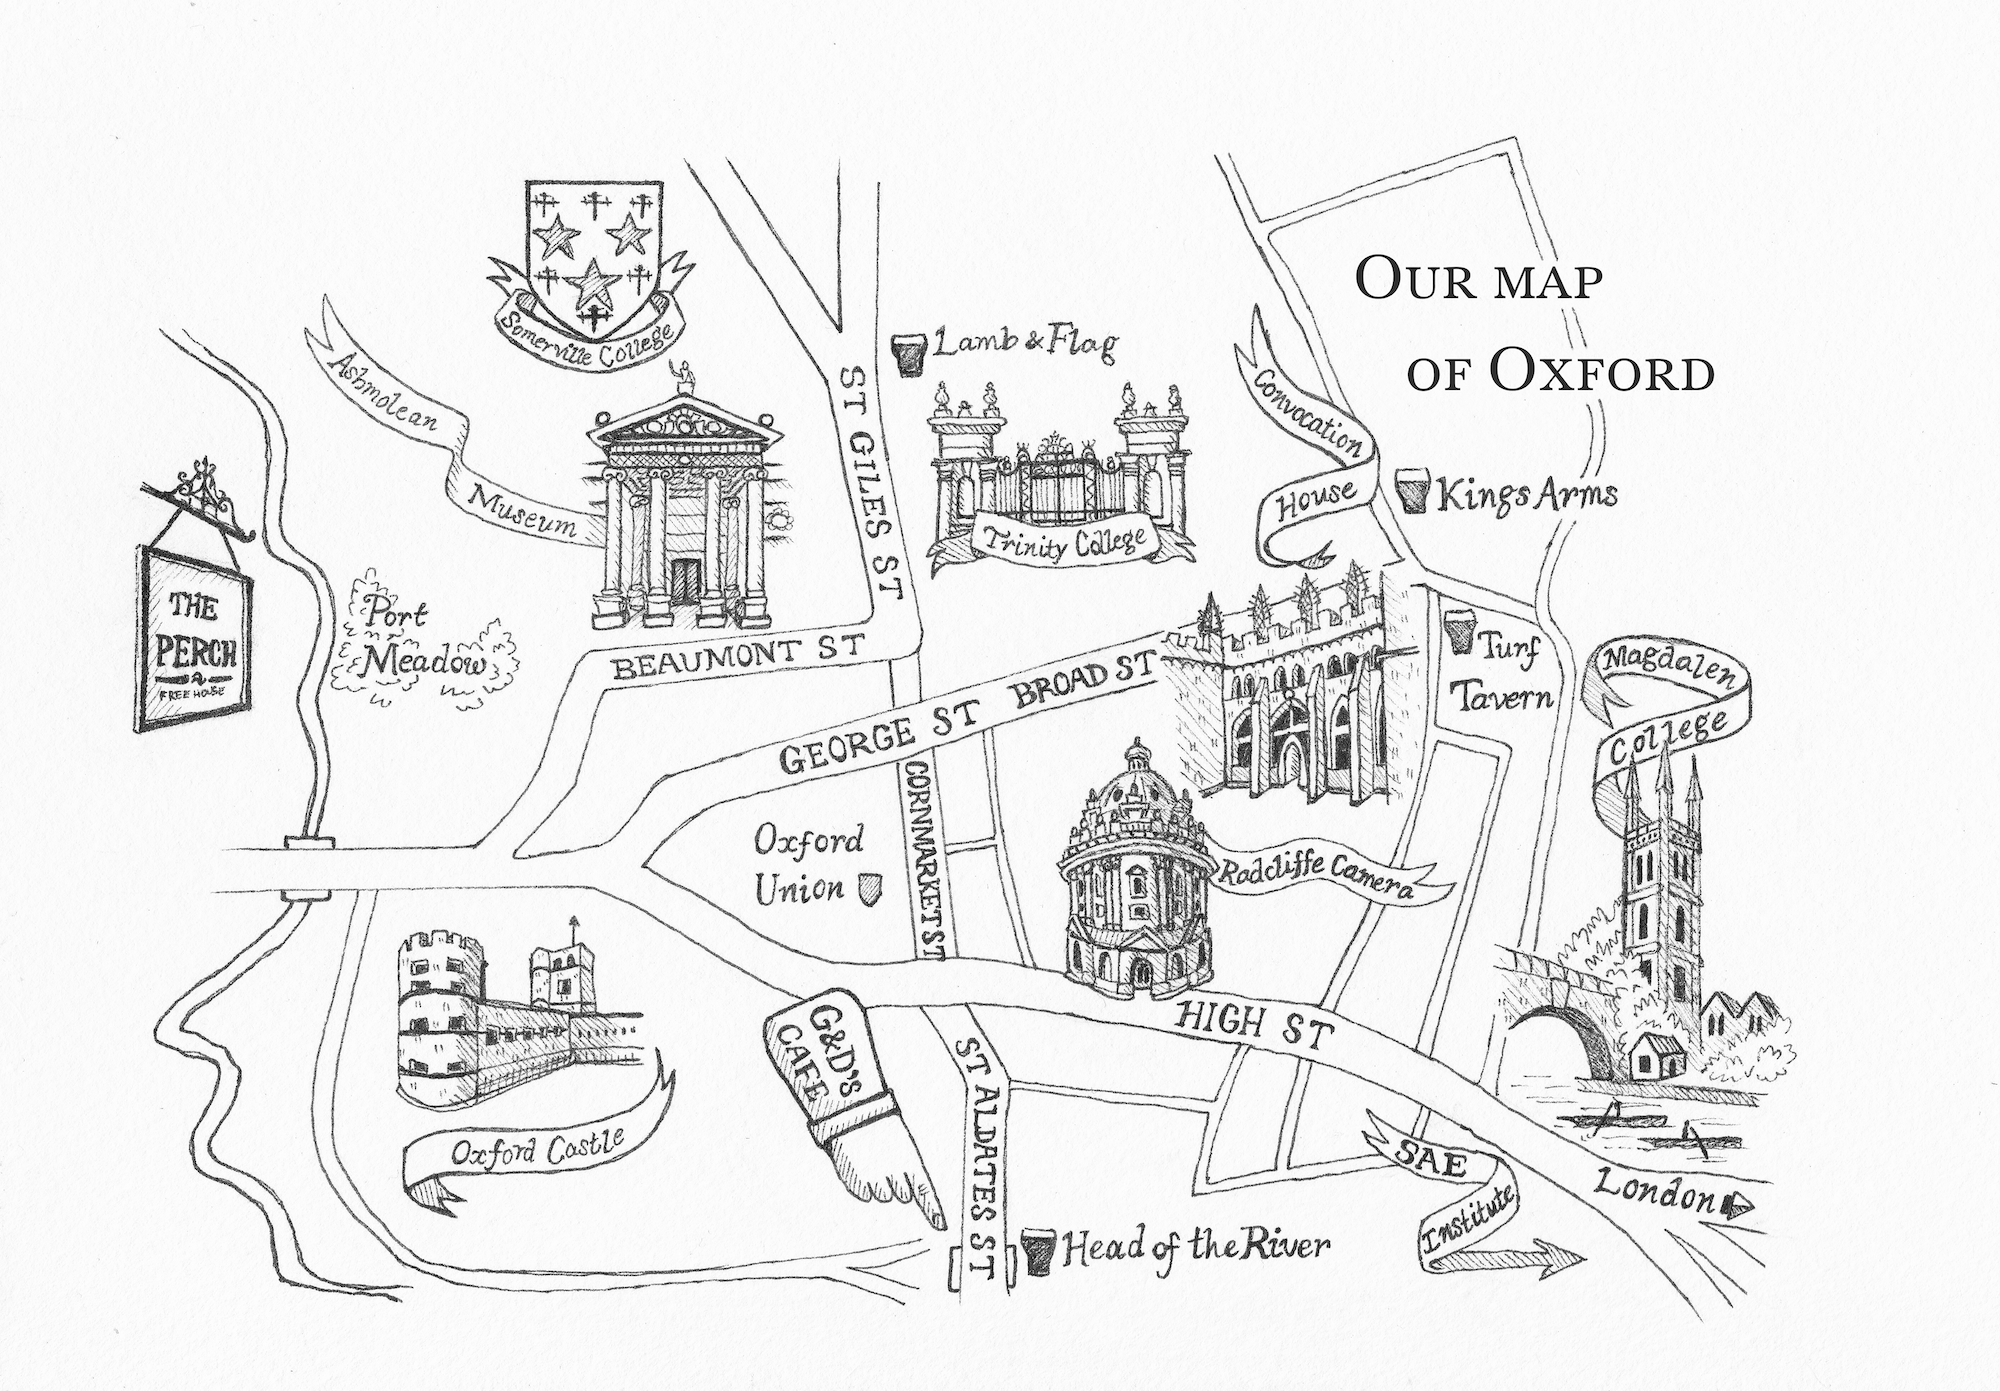 OUR MAP
OF OXFORD
Somerville College
Ashmolean
Museum
ST GILES ST
Lamb & Flag
Trinity College
Convocation
House
Kings Arms
THE
PERCH
FREE HOUSE
Port
Meadow
BEAUMONT ST
GEORGE ST
BROAD ST
Turf
Tavern
Magdalen
College
CORNMARKET ST
Oxford
Union
Radcliffe Camera
HIGH ST
G&D'S
CAFE
ST ALDATES ST
Oxford Castle
SAE
Institute
London
Head of the River